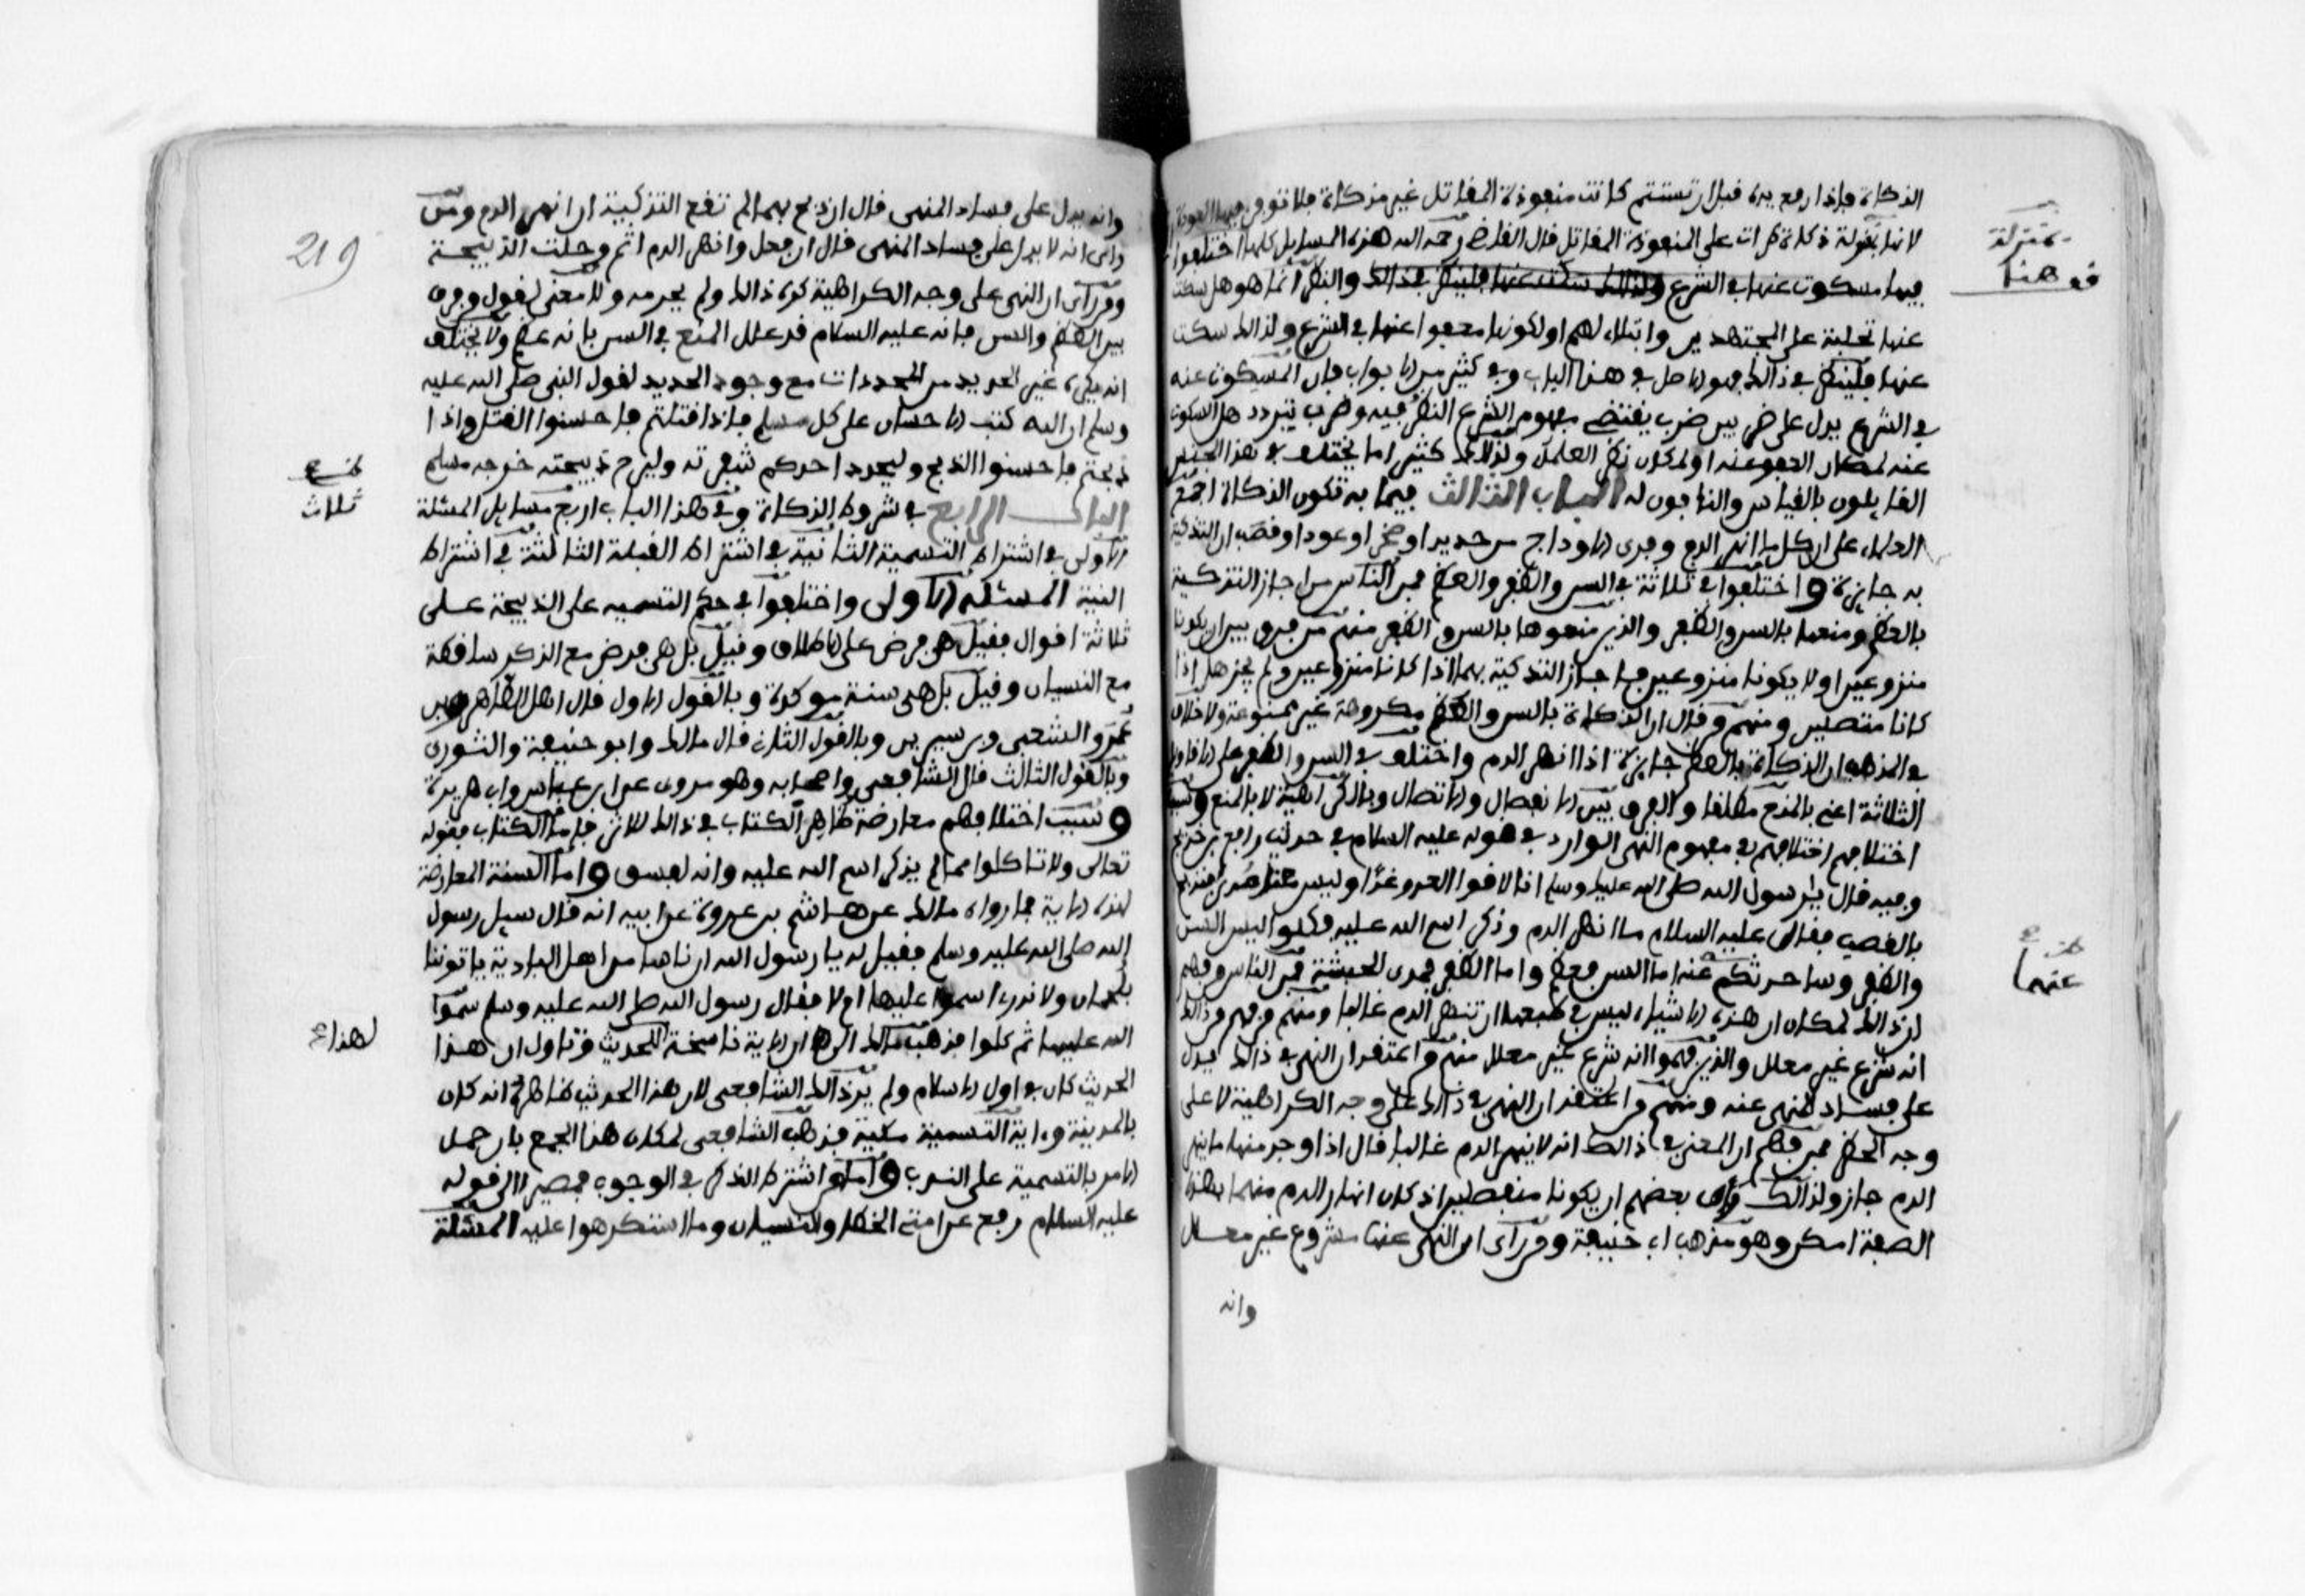 الذكاة فإذا رفع يده قبل أن تستتم كانت منفوذة المقاتل غير مذكاة فلا تؤثر فيها العودة
لأنها بمنزلة ذكاة طرأت على المنفوذة المقاتل قال القاضي رحمه الله هذه المسايل كلها اختلفوا
فيها مسكوت عنها في الشرع ولذالك سكت عنها فلينظر في ذالك والنظر انما هو هل سكت
عنها تحلية على المجتهدين وابتلاء لهم او لكونها معفوا عنها في الشرع ولذالك سكت
عنها فلينظر في ذالك فهو الاصل في هذا الباب وفي كثير من الابواب فان المسكوت عنه
في الشرع يدل على ضربين ضرب يقتضي مفهوم الشرع النظر فيه وضرب يتردد هل السكوت
عنه لمكان العفو عنه او لمكان نظر العلماء ولذلك كثيرا ما يختلف في هذا الجنس
القايلون بالقياس والنافون له الباب الثالث فيما به تكون الذكاة اجمع
العلماء على ان كل ما انهر الدم وفرى الاوداج من حديد او صخر او عود او قصب ان التذكية
به جايزة واختلفوا في ثلاثة في السن والظفر والعظم فمن الناس من اجاز التذكية
بالعظم ومنعها بالسن والظفر والذين منعوها بالسن والظفر منهم من فرق بين ان يكونا
منزوعين او لا يكونا منزوعين فاجاز التذكية بهما اذا كانا منزوعين ولم يجز هل اذا
كانا متصلين ومنهم من قال ان الذكاة بالسن والعظم مكروهة غير ممنوعة ولا خلاف
في المذهب ان الذكاة بالعظم جايزة اذا انهر الدم واختلف في السن والظفر على الاقاويل
الثلاثة اعني بالمنع مطلقا والفرق بين الانفصال والاتصال وبالكراهية لا بالمنع وسبب
اختلافهم اختلافهم في مفهوم النهي الوارد في قوله عليه السلام في حديث رافع بن خديج
وفيه قال يا رسول الله صلى الله عليه وسلم انا لاقوا العدو غدا وليس معنا مدى فنذبح
بالقصب فقال عليه السلام ما انهر الدم وذكر اسم الله عليه فكلوا ليس السن
والظفر وساحدثكم عنه اما السن فعظم واما الظفر فمدى الحبشة فمن الناس من فهم
ان ذالك لمكان ان هذه الاشياء ليس في طبعها ان تنهر الدم غالبا ومنهم من فهم من ذالك
انه شرع غير معلل والذين فهموا انه شرع غير معلل منهم من اعتقد ان النهي في ذالك يدل
على فساد المنهي عنه ومنهم من اعتقد ان النهي في ذالك على وجه الكراهية لا على
وجه الحظر فمن فهم ان المعنى في ذالك انه لا ينهر الدم غالبا قال اذا وجد منها ما ينهر
الدم جاز ولذالك رأى بعضهم ان يكونا منفصلين اذ كان انهار الدم منهما بهذه
الصفة امكن وهو مذهب ابي حنيفة ومن رأى ان النهي عنها مشروع غير معلل
وانه
بمنزلة
هنا
عنهما
وانه يدل على فساد المنهي قال ان ذبح بهما لم تقع التذكية ان انهر الدم ومن
رأى انه لا يدل على فساد المنهي قال ان فعل وانهر الدم اثم وحلت الذبيحة
ومن رأى ان النهي على وجه الكراهية كره ذالك ولم يحرمه ولا معنى لقول من فرق
بين العظم والسن فانه عليه السلام قد علل المنع في السن بانه عظم ولا يختلف
انه يكره غير الحديد من المحددات مع وجود الحديد لقول النبي صلى الله عليه
وسلم ان الله كتب الاحسان على كل مسلم فاذا قتلتم فاحسنوا القتل واذا
ذبحتم فاحسنوا الذبح وليحدد احدكم شفرته وليرح ذبيحته خرجه مسلم
الباب الرابع في شروط الذكاة وفي هذا الباب اربع مسايل المسئلة
الاولى في اشتراط التسمية الثانية في اشتراط القبلة الثالثة في اشتراط
النية المسئلة الاولى واختلفوا في حكم التسميه على الذبيحة على
ثلاثة اقوال فقيل هي فرض على الاطلاق وقيل بل هي فرض مع الذكر ساقطة
مع النسيان وقيل بل هي سنة موكدة وبالقول الاول قال اهل الظاهر وابن
عمر والشعبي وبن سيرين وبالقول الثاني قال مالك وابو حنيفة والثوري
وبالقول الثالث قال الشافعي واصحابه وهو مروى عن ابن عباس وابي هريرة
وسبب اختلافهم معارضة ظاهر الكتاب في ذالك للاثر فاما الكتاب فقوله
تعالى ولا تاكلوا مما لم يذكر اسم الله عليه وانه لفسق واما السنة المعارضة
لهذه الاية فما رواه مالك عن هشام بن عروة عن ابيه انه قال سيل رسول
الله صلى الله عليه وسلم فقيل له يا رسول الله ان ناسا من اهل البادية ياتوننا
بلحمان ولا ندري اسموا عليها ام لا فقال رسول الله صلى الله عليه وسلم سموا
الله عليها ثم كلوا فذهب مالك الى ان الاية ناسخة للحديث وتاول ان هذا
الحديث كان في اول الاسلام ولم ير ذالك الشافعي لان هذا الحديث ظاهره انه كان
بالمدينة واية التسمية مكية فذهب الشافعي لمكان هذا الجمع بان حمل
الامر بالتسمية على الندب واما من اشترط الذكر في الوجوب فمصيرا الى قوله
عليه السلام رفع عن امتي الخطأ والنسيان وما استكرهوا عليه المسئلة
219
ثلاث
لهذا